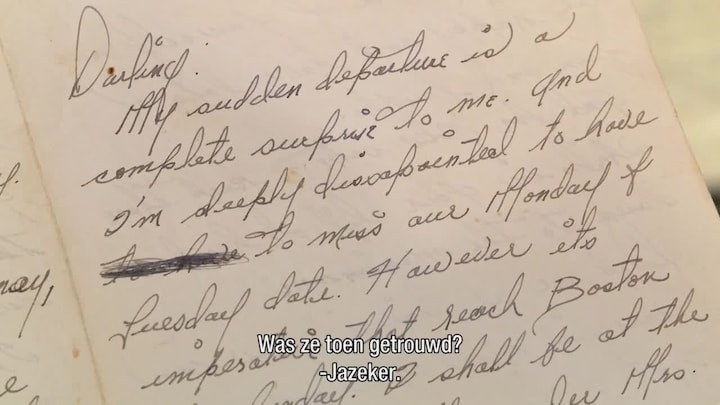 Darling:
My sudden departure is a
complete surprise to me. And
I'm deeply disappointed to have
to have to miss our Monday &
Tuesday date. However its
imperative that reach Boston
I shall be at the
Mrs.
may,
Was ze toen getrouwd?
-Jazeker.